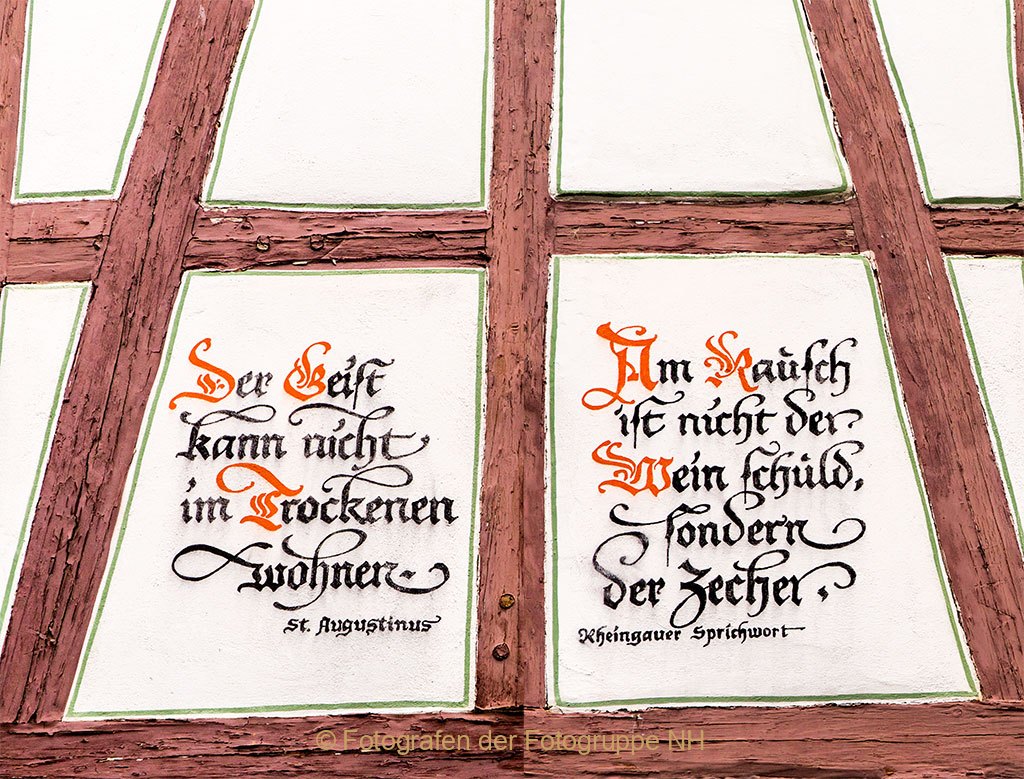 Der Geist
kann nicht
im Trockenen
wohnen.
St. Augustinus
Am Rausch
ist nicht der
Wein schuld,
sondern
der Zecher.
Rheingauer Sprichwort
© Fotografen der Fotogruppe NH